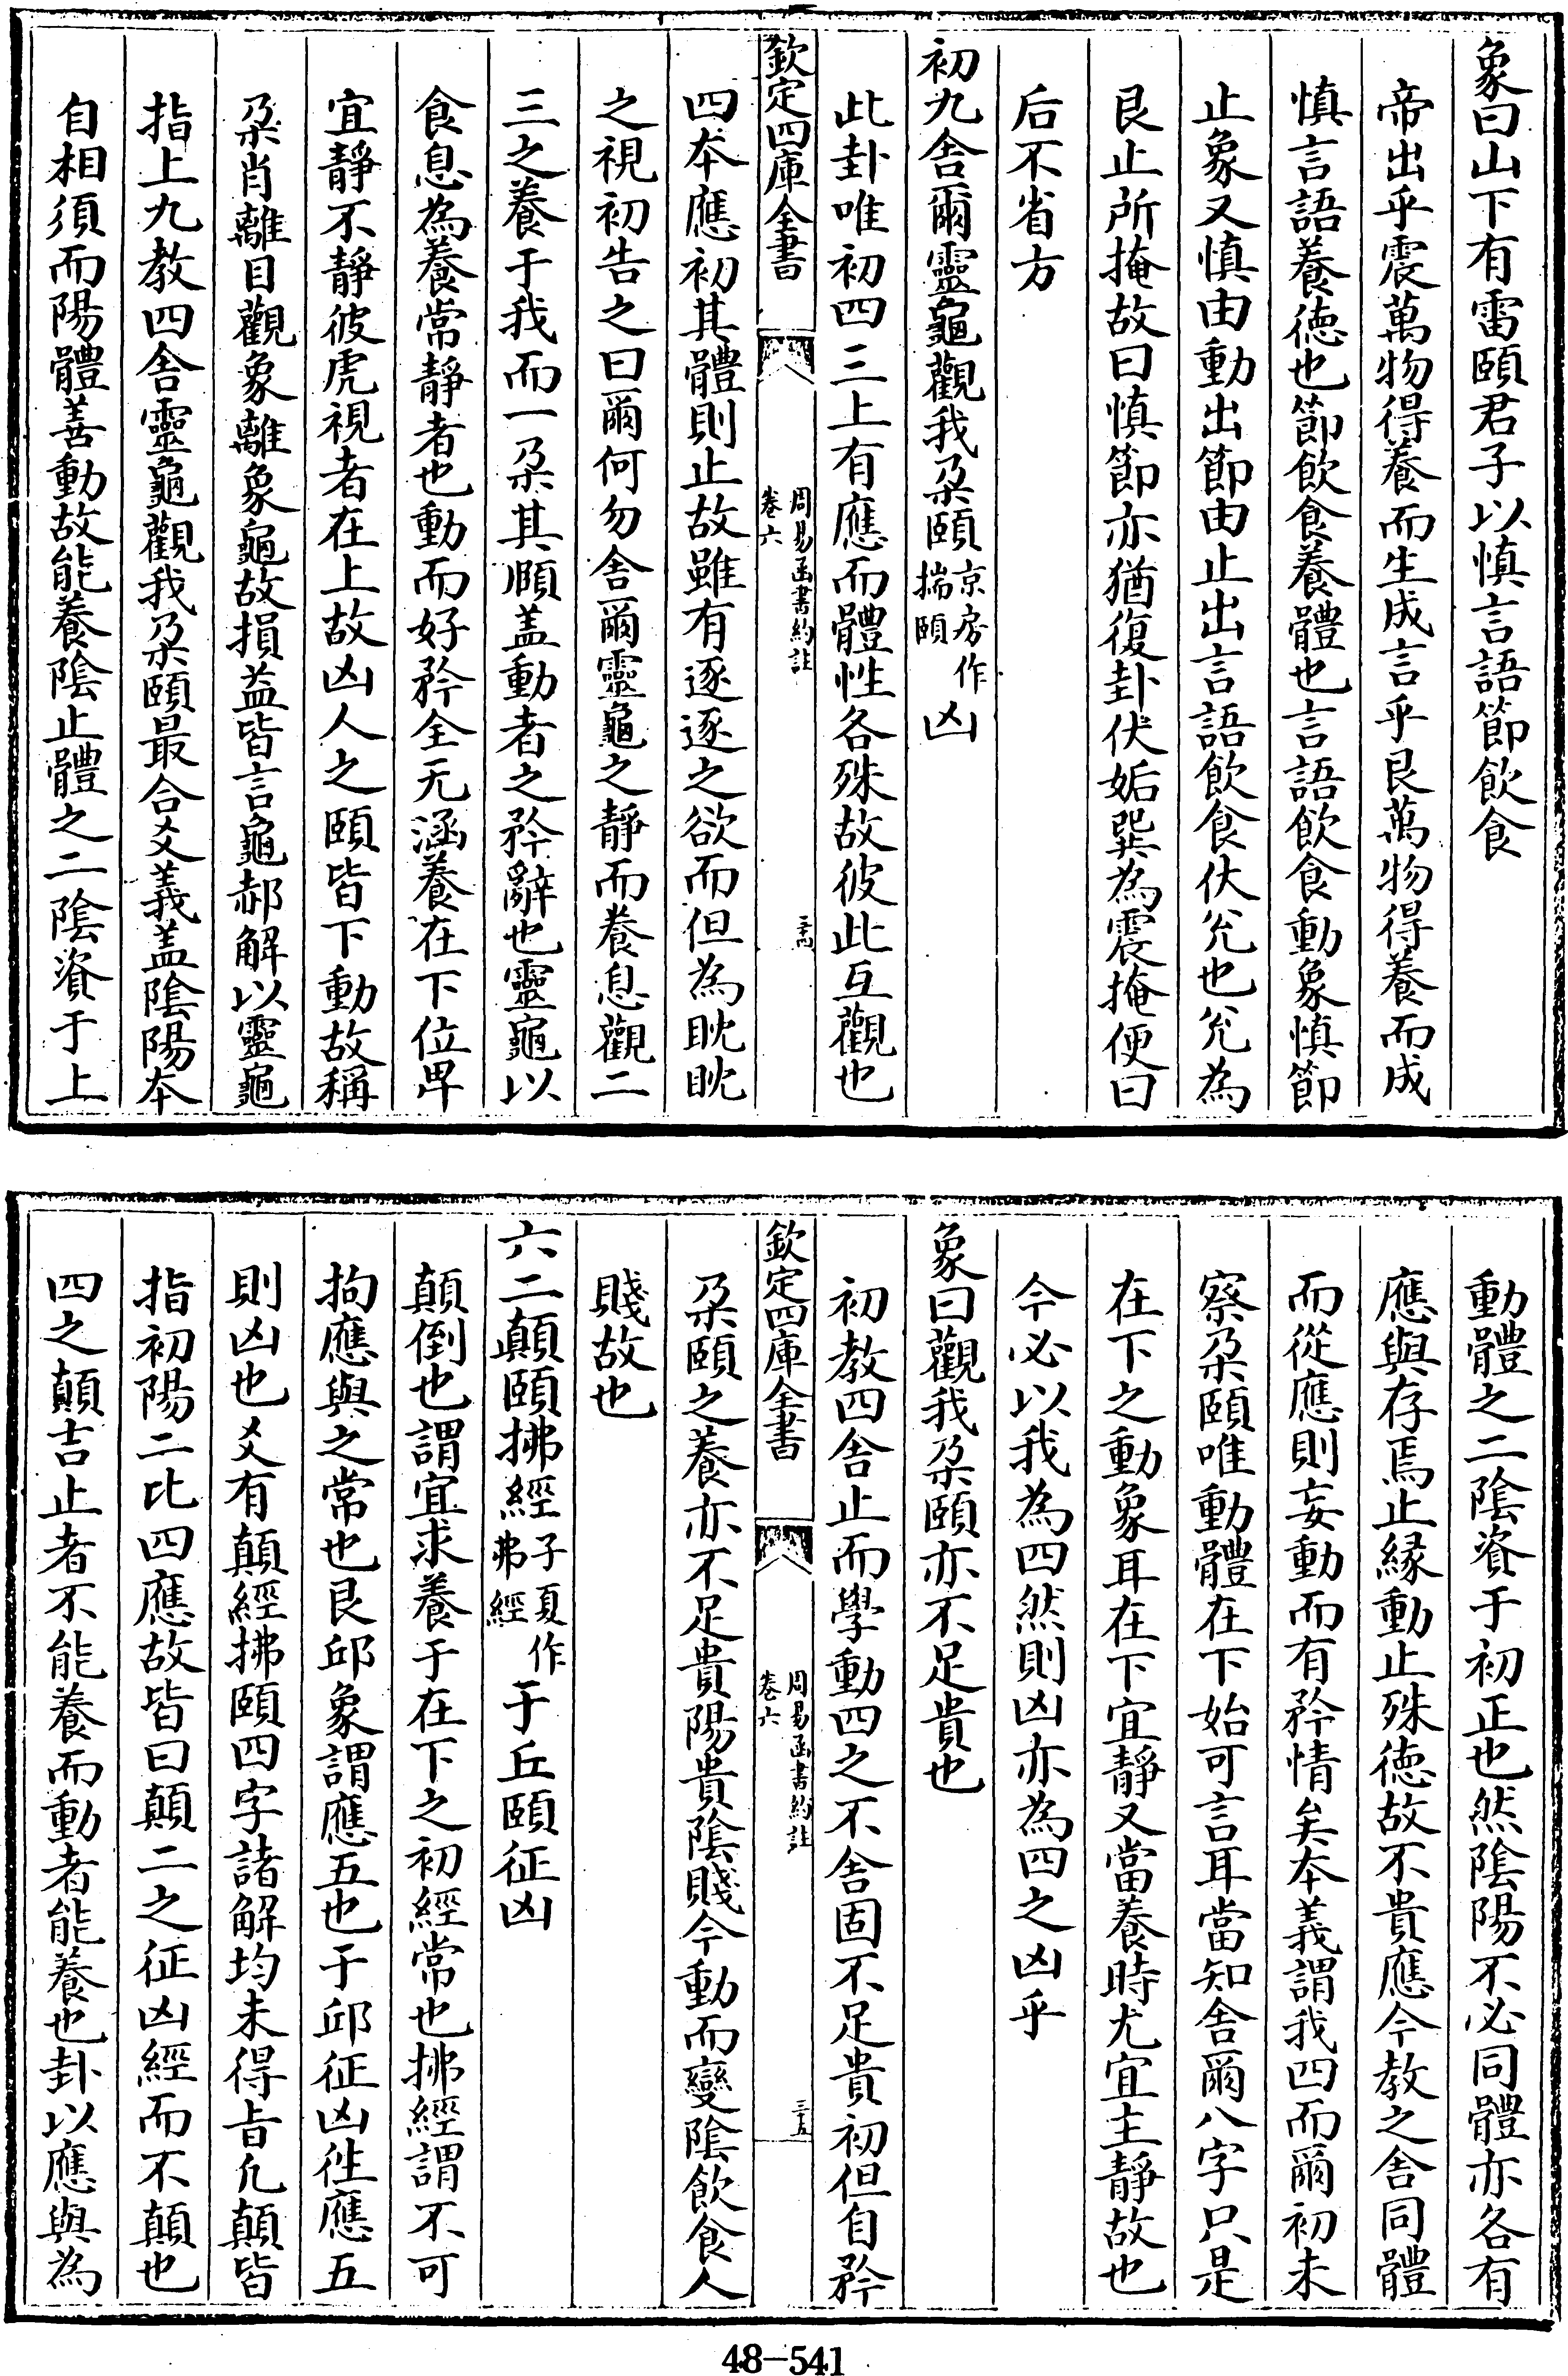 象曰山下有雷頤君子以慎言語節飲食
帝出乎震萬物得養而生成言乎艮萬物得養而成
慎言語養徳也節飲食養體也言語飲食動象慎節
止象又慎由動出節由止出言語飲食伏兊也兊為
艮止所掩故曰慎節亦猶復卦伏姤巽為震掩便曰
后不省方
初九舎爾靈龜觀我朶頤京房作揣頤凶
此卦唯初四三上有應而體性各殊故彼此互觀也
欽定四庫全書
周易函書約註
卷六
三十四
四本應初其體則止故雖有逐逐之欲而但為眈眈
之視初告之曰爾何勿舎爾靈龜之靜而養息觀二
三之養于我而一朶其頤盖動者之矜辭也靈龜以
食息為養常靜者也動而好矜全无涵養在下位卑
宜靜不靜彼虎視者在上故凶人之頤皆下動故稱
朶肖離目觀象離象龜故損益皆言龜郝解以靈龜
指上九教四舎靈龜觀我朶頤最合爻義盖隂陽本
自相須而陽體善動故能養隂止體之二隂資于上
動體之二隂資于初正也然隂陽不必同體亦各有
應與存焉止緣動止殊徳故不貴應今教之舎同體
而從應則妄動而有矜情矣本義謂我四而爾初未
察朶頤唯動體在下始可言耳當知舎爾八字只是
在下之動象耳在下宜靜又當養時尤宜主靜故也
今必以我為四然則凶亦為四之凶乎
象曰觀我朶頤亦不足貴也
初教四舎止而學動四之不舎固不足貴初但自矜
欽定四庫全書
周易函書約註
卷六
三十五
朶頤之養亦不足貴陽貴隂賤今動而變隂飲食人
賤故也
六二顛頤拂經子夏作弗經于丘頤征凶
顛倒也謂宜求養于在下之初經常也拂經謂不可
拘應與之常也艮邱象謂應五也于邱征凶徃應五
則凶也爻有顛經拂頤四字諸解均未得㫖凢顛皆
指初陽二比四應故皆曰顛二之征凶經而不顛也
四之顛吉止者不能養而動者能養也卦以應與為
48-541